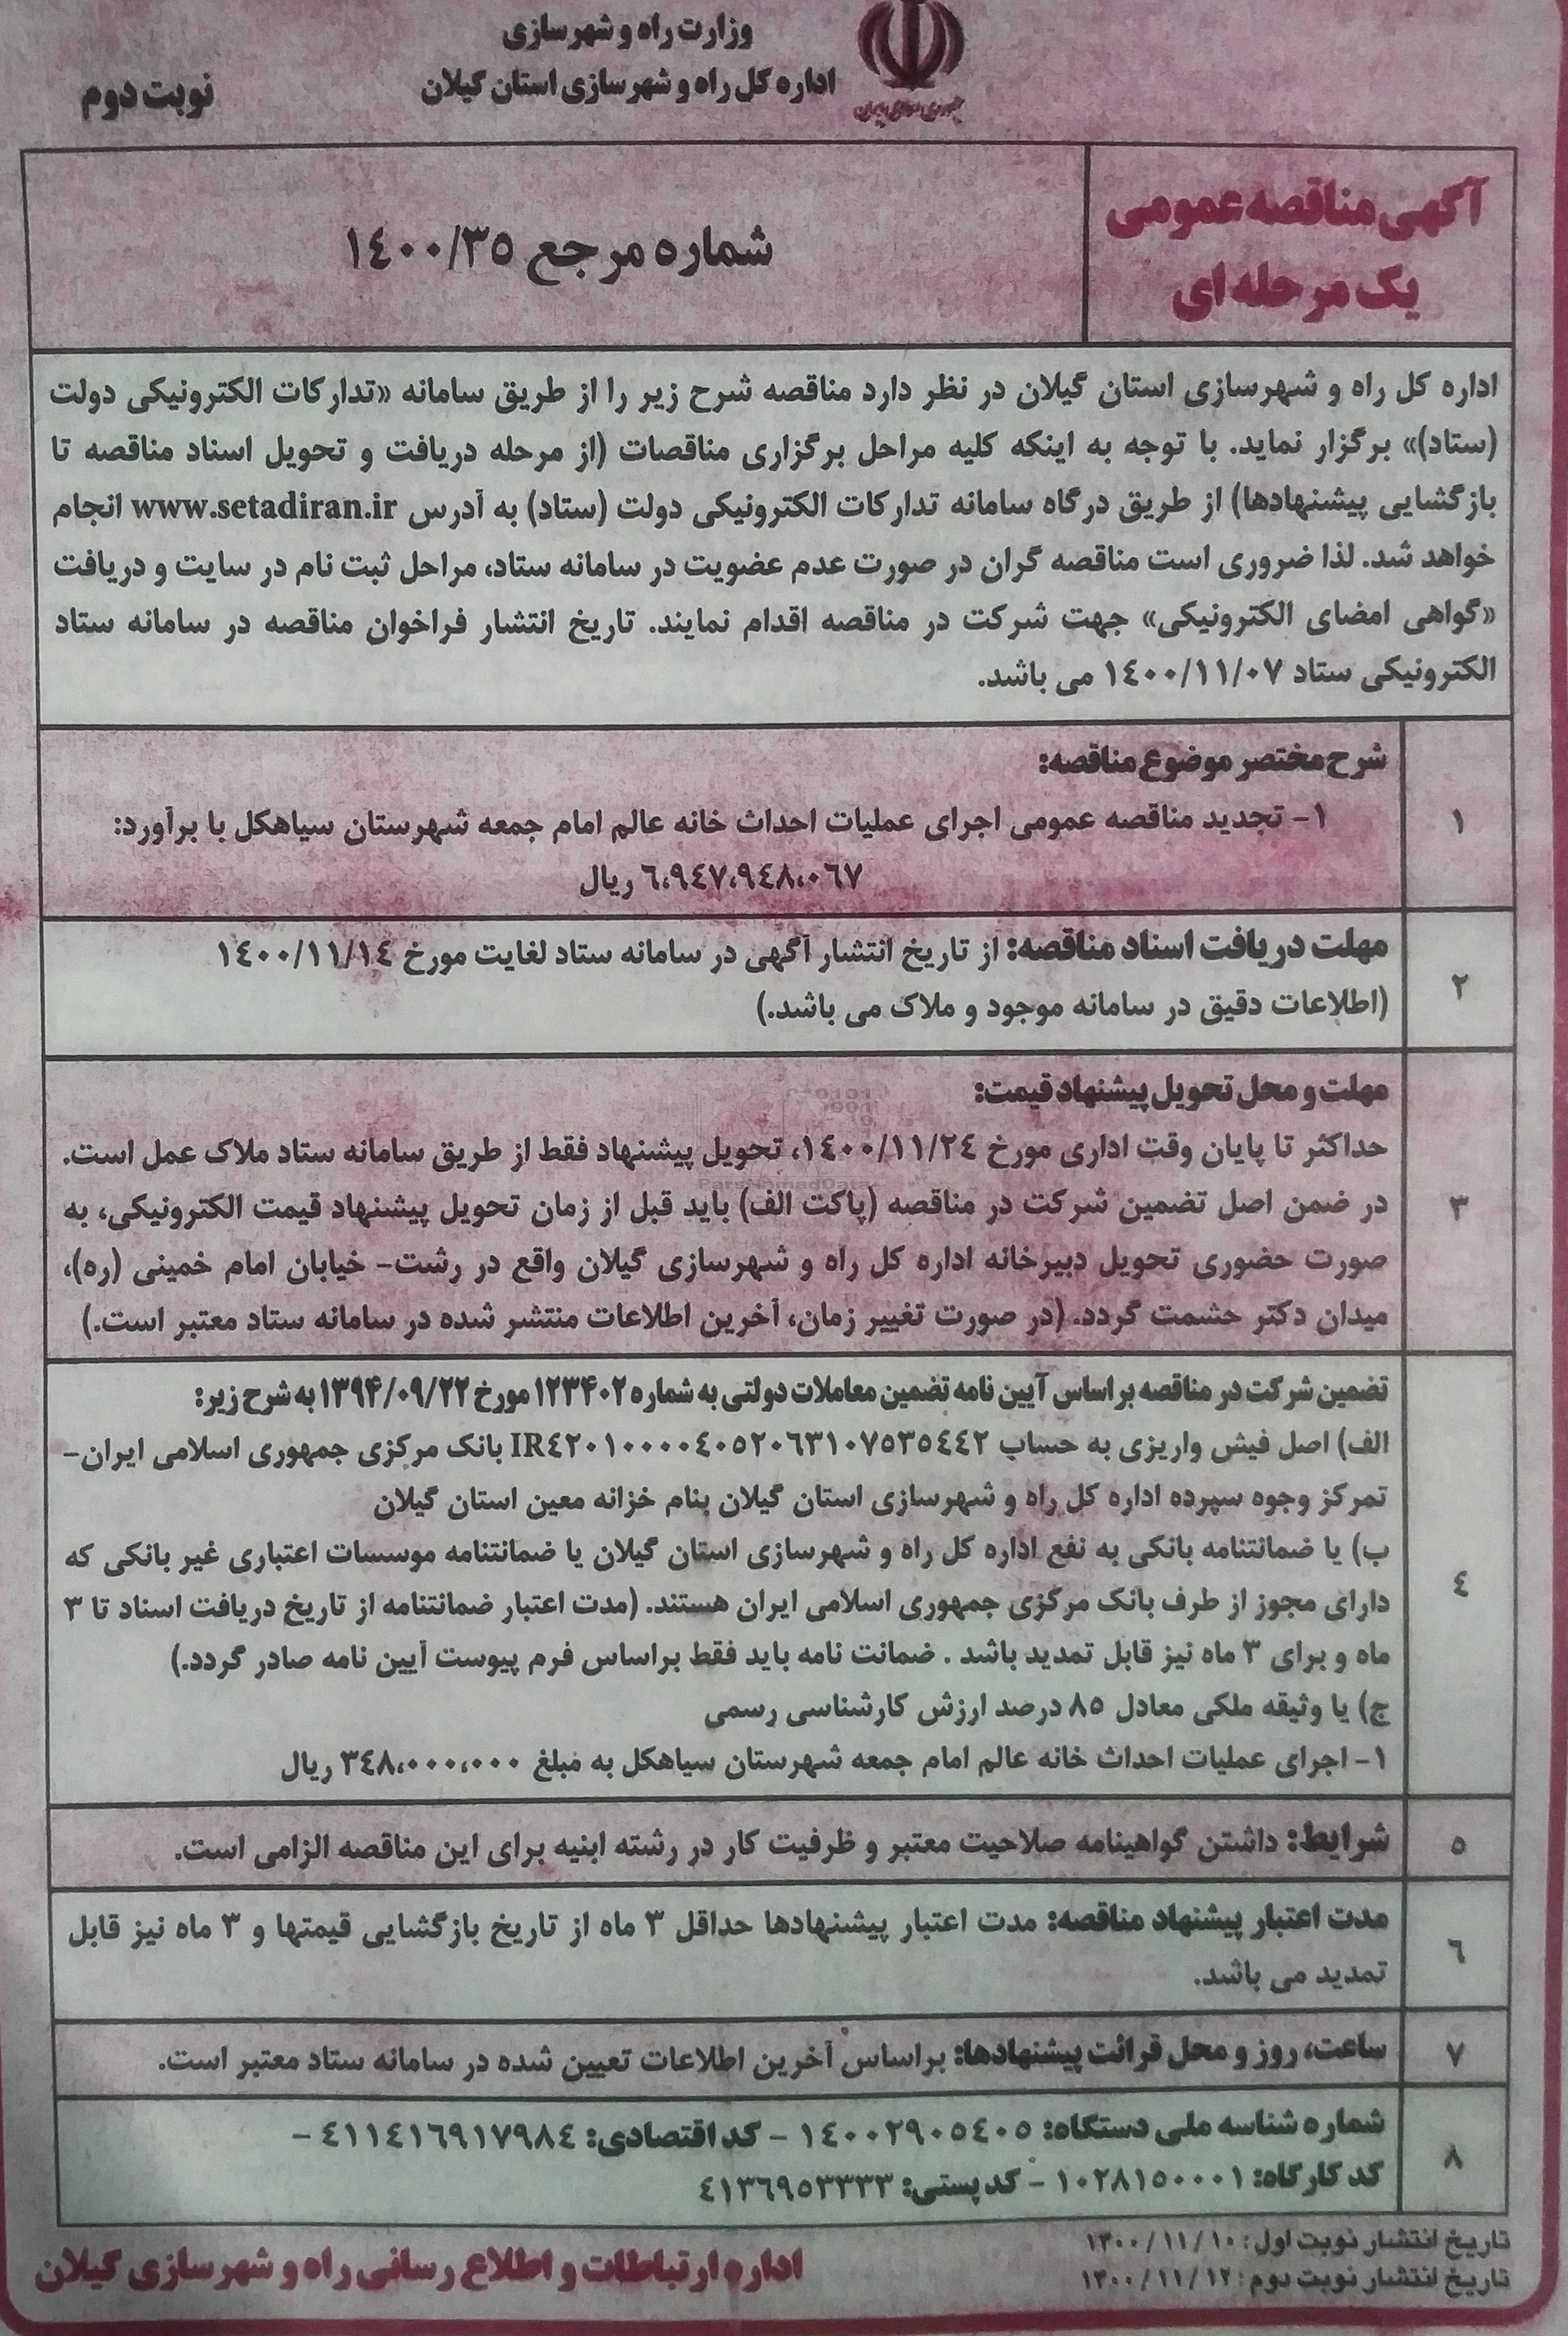 وزارت راه و شهرسازی
اداره کل راه و شهرسازی استان گیلان
نوبت دوم
جمهوری اسلامی ایران
آگهی مناقصه عمومی
یک مرحله ای
شماره مرجع ۱۴۰۰/۳۵
اداره کل راه و شهرسازی استان گیلان در نظر دارد مناقصه شرح زیر را از طریق سامانه «تدارکات الکترونیکی دولت
(ستاد)» برگزار نماید. با توجه به اینکه کلیه مراحل برگزاری مناقصات (از مرحله دریافت و تحویل اسناد مناقصه تا
بازگشایی پیشنهادها) از طریق درگاه سامانه تدارکات الکترونیکی دولت (ستاد) به آدرس www.setadiran.ir انجام
خواهد شد. لذا ضروری است مناقصه گران در صورت عدم عضویت در سامانه ستاد، مراحل ثبت نام در سایت و دریافت
«گواهی امضای الکترونیکی» جهت شرکت در مناقصه اقدام نمایند. تاریخ انتشار فراخوان مناقصه در سامانه ستاد
الکترونیکی ستاد ۱۴۰۰/۱۱/۰۷ می باشد.
۱
شرح مختصر موضوع مناقصه:
۱- تجدید مناقصه عمومی اجرای عملیات احداث خانه عالم امام جمعه شهرستان سیاهکل با برآورد:
۶،۹۴۷،۹۴۸،۰۶۷ ریال
۲
مهلت دریافت اسناد مناقصه: از تاریخ انتشار آگهی در سامانه ستاد لغایت مورخ ۱۴۰۰/۱۱/۱۴
(اطلاعات دقیق در سامانه موجود و ملاک می باشد.)
۳
مهلت و محل تحویل پیشنهاد قیمت:
حداکثر تا پایان وقت اداری مورخ ۱۴۰۰/۱۱/۲۴، تحویل پیشنهاد فقط از طریق سامانه ستاد ملاک عمل است.
در ضمن اصل تضمین شرکت در مناقصه (پاکت الف) باید قبل از زمان تحویل پیشنهاد قیمت الکترونیکی، به
صورت حضوری تحویل دبیرخانه اداره کل راه و شهرسازی گیلان واقع در رشت- خیابان امام خمینی (ره)،
میدان دکتر حشمت گردد. (در صورت تغییر زمان، آخرین اطلاعات منتشر شده در سامانه ستاد معتبر است.)
ParsNamadData
۴
تضمین شرکت در مناقصه بر اساس آیین نامه تضمین معاملات دولتی به شماره ۱۲۳۴۰۲ مورخ ۱۳۹۴/۰۹/۲۲ به شرح زیر:
الف) اصل فیش واریزی به حساب IR۴۲۰۱۰۰۰۰۴۰۵۲۰۶۳۱۰۷۵۳۵۴۴۲ بانک مرکزی جمهوری اسلامی ایران-
تمرکز وجوه سپرده اداره کل راه و شهرسازی استان گیلان بنام خزانه معین استان گیلان
ب) یا ضمانتنامه بانکی به نفع اداره کل راه و شهرسازی استان گیلان یا ضمانتنامه موسسات اعتباری غیر بانکی که
دارای مجوز از طرف بانک مرکزی جمهوری اسلامی ایران هستند. (مدت اعتبار ضمانتنامه از تاریخ دریافت اسناد تا ۳
ماه و برای ۳ ماه نیز قابل تمدید باشد . ضمانت نامه باید فقط براساس فرم پیوست آیین نامه صادر گردد.)
ج) یا وثیقه ملکی معادل ۸۵ درصد ارزش کارشناسی رسمی
۱- اجرای عملیات احداث خانه عالم امام جمعه شهرستان سیاهکل به مبلغ ۳۴۸،۰۰۰،۰۰۰ ریال
۵
شرایط: داشتن گواهینامه صلاحیت معتبر و ظرفیت کار در رشته ابنیه برای این مناقصه الزامی است.
۶
مدت اعتبار پیشنهاد مناقصه: مدت اعتبار پیشنهادها حداقل ۳ ماه از تاریخ بازگشایی قیمتها و ۳ ماه نیز قابل
تمدید می باشد.
۷
ساعت، روز و محل قرائت پیشنهادها: براساس آخرین اطلاعات تعیین شده در سامانه ستاد معتبر است.
۸
شماره شناسه ملی دستگاه: ۱۴۰۰۲۹۰۵۴۰۵ - کد اقتصادی: ۴۱۱۴۱۶۹۱۷۹۸۴ -
کد کارگاه: ۱۰۲۸۱۵۰۰۰۱ - کد پستی: ۴۱۳۶۹۵۳۳۳۳
تاریخ انتشار نوبت اول: ۱۴۰۰/۱۱/۱۰
تاریخ انتشار نوبت دوم: ۱۴۰۰/۱۱/۱۲
اداره ارتباطات و اطلاع رسانی راه و شهرسازی گیلان